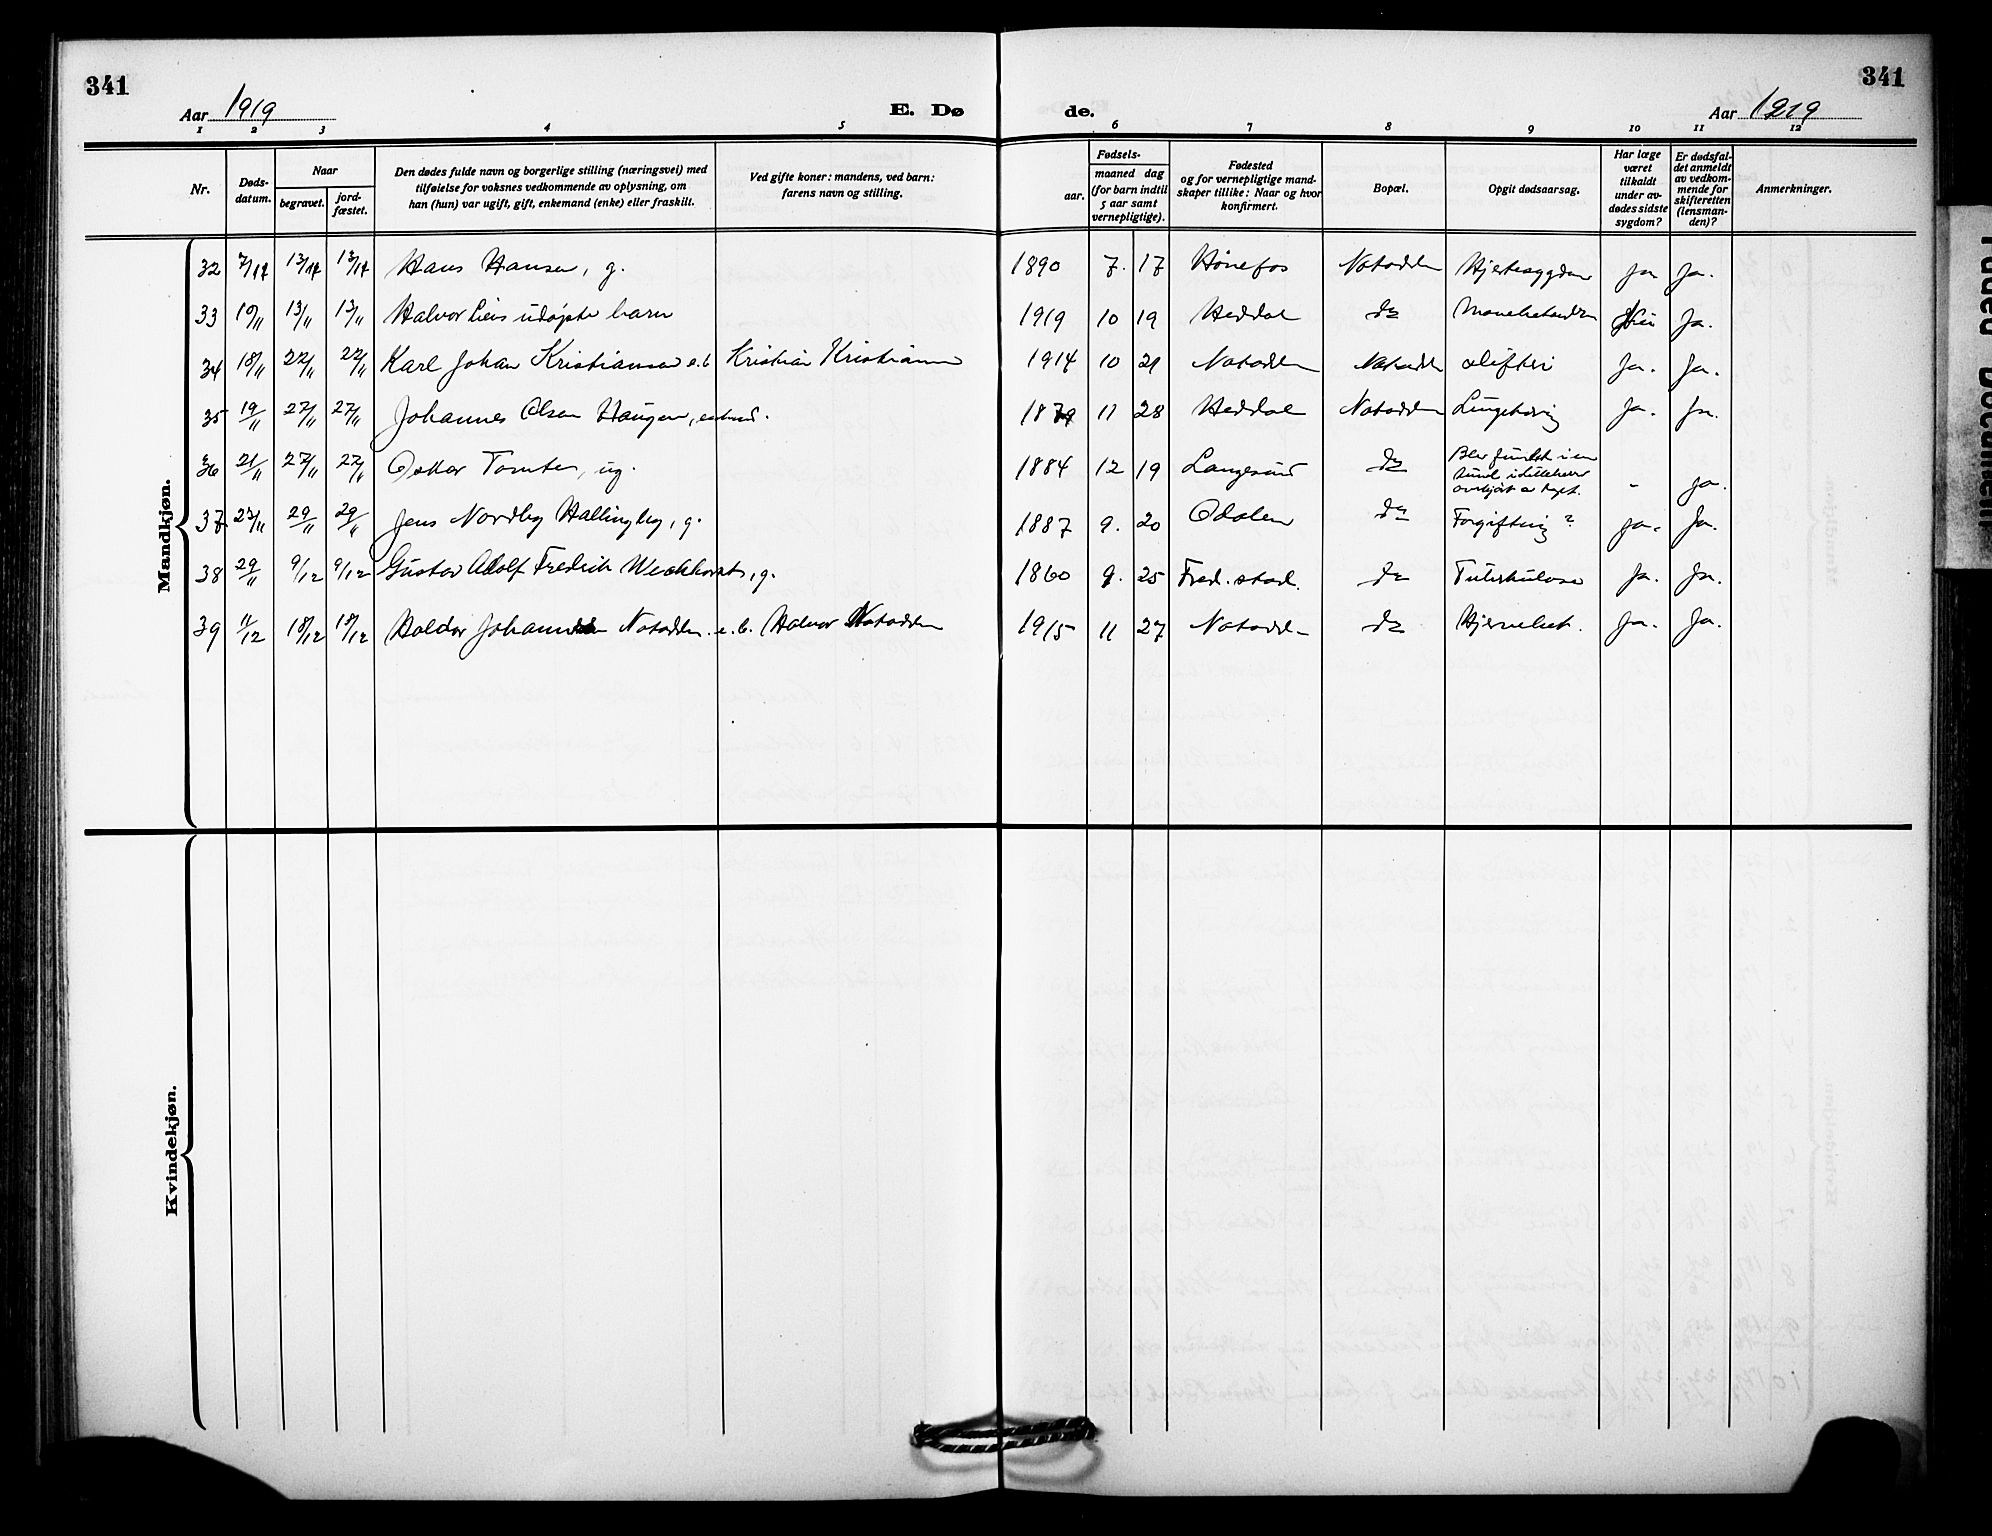 341
341
Aar 1919
E. Dø
de.
Aar 1919
1 2 3 4 5 6 7 8 9 10 11 12
Nr.
Døds-
datum.
Naar
begravet.
jord-
fæstet.
Den dødes fulde navn og borgerlige stilling (næringsvei) med
tilføielse for voksnes vedkommende av oplysning, om
han (hun) var ugift, gift, enkemand (enke) eller fraskilt.
Ved gifte koner: mandens, ved barn:
farens navn og stilling.
Fødsels-
aar.
maaned dag
(for barn indtil
5 aar samt
vernepligtige).
Fødested
og for vernepligtige mand-
skaper tillike: Naar og hvor
konfirmert.
Bopæl.
Opgit dødsaarsag.
Har læge
været
tilkaldt
under av-
dødes sidste
sygdom?
Er dødsfal-
det anmeldt
av vedkom-
mende for
skifteretten
(lensman-
den)?
Anmerkninger.
Mandkjøn.
32 7/11 13/11 13/11 Hans Hansen, g. 1890 7. 17 Hønefos Notodden Hjertesygdom Ja Ja.
33 10/11 13/11 13/11 Halvor Leis udøpte barn 1919 10 19 Heddal do Nei Ja.
34 18/11 22/11 22/11 Karl Johan Kristiansen e.b Kristian Kristiansen 1914 10 21 Notodden Notodden difteri Ja. Ja.
35 19/11 27/11 27/11 Johannes Olsen Haugen, enkem. 11 28 Heddal Notodden Ja. Ja.
36 21/11 27/11 27/11 Oskar Tomter, ug. 1884 12 19 Langesund do Blev fundet i en
tunel i Lilleherr
overkjørt av toget. - Ja.
37 23/11 29/11 29/11 Jens Nordby Hallingby, g. 1887 9. 20 Odalen do Forgiftning? ja. Ja.
38 29/11 9/12 9/12 Gustav Adolf Fredrik Weckhorst, g. 1860 9. 25 Fred.stad. do Tuberkulose Ja. Ja.
39 11/12 18/12 18/12 Haldor Johannes Notodden. e.b. Halvor Notodden 1915 11 27 Notodd- do Hjernebet. Ja. Ja.
Kvindekjøn.